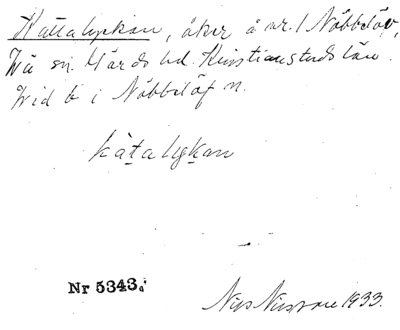 Kattalyckan, åker å nr. 1 Nöbbelöv,
Wä sn. Härads hd. Kristianstads län.
Wid b i Nöbbelöf n.
kàtalykan
Nr 5343.
Nils Nilsson 1933.